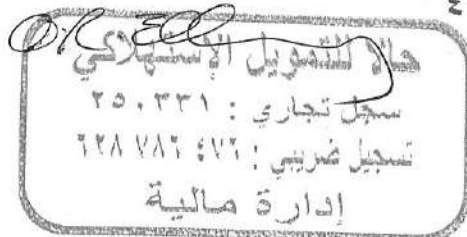 ٤
حالا للتمويل الإستهلاكي
سجل تجاري : ٢٥٠٣٣١
تسجيل ضريبي : ٦٢٨ ٧٨٦ ٤٧٦
إدارة مالية